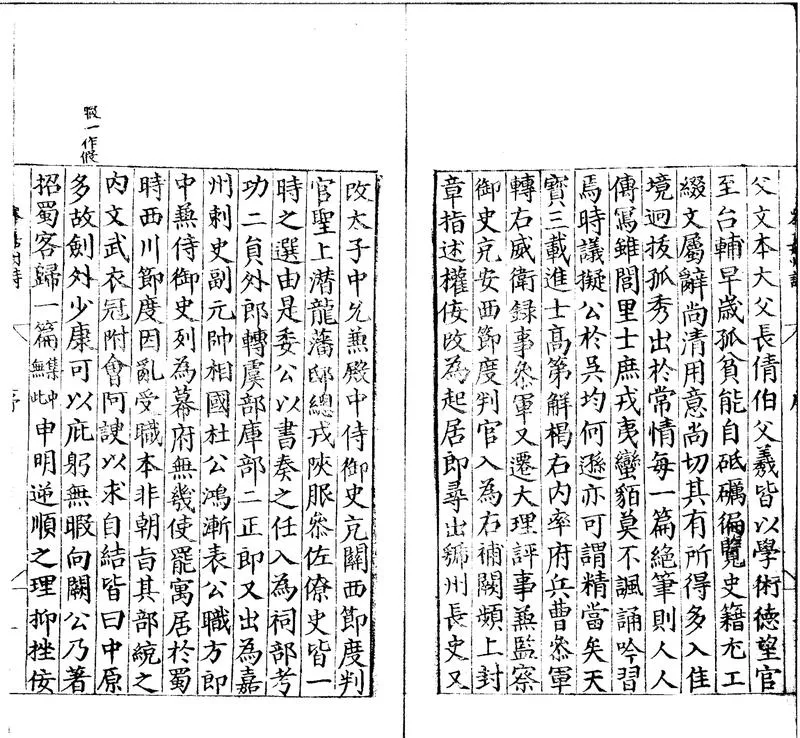 父文本大父長倩伯父羲皆以學術德望官
至台輔早歲孤貧能自砥礪徧覽史籍尤工
綴文屬辭尚清用意尚切其有所得多入佳
境迥拔孤秀出於常情每一篇絕筆則人人
傳寫雖閭里士庶戎夷蠻貊莫不諷誦吟習
焉時議擬公於吳均何遜亦可謂精當矣天
寶三載進士髙第解褐右内率府兵曹叅軍
轉右威衛録事叅軍又遷大理評事兼監察
御史充安西節度判官入為右補闕頻上封
章指述權佞改為起居郎尋出虢州長史又
序
改太子中允兼殿中侍御史充關西節度判
官聖上潜龍藩邸總戎陜服叅佐僚史皆一
時之選由是委公以書奏之任入為祠部考
功二員外郎轉虞部庫部二正郎又出為嘉
州刺史副元帥相國杜公鴻漸表公職方郎
中兼侍御史列為幕府無幾使罷寓居於蜀
時西川節度因亂受職本非朝旨其部統之
内文武衣冠附會阿諛以求自結皆曰中原
多故劍外少康可以庇躬無暇向闕公乃著
招蜀客歸一篇集中無此申明逆順之理抑挫佞
暇一作假
序